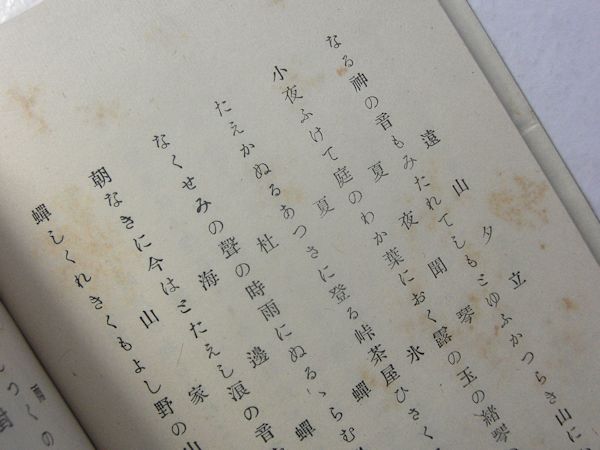 遠山夕立
なる神の音もみたれてしもとゆふかつらき山に
夏夜聞琴
小夜ふけて庭のわか葉におく露の玉の緒琴
夏氷
たえかぬるあつさに登る峠茶屋ひさく
杜蟬
なくせみの聲の時雨にぬるゝらむ
海邊蟬
朝なきに今はとたえし浪の音
山家
蟬しくれきくもよし野の山